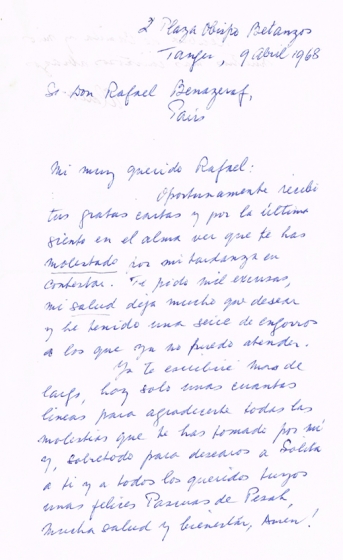 2 Plaza Obispo Betanzos
Tanger, 9 abril 1968
Sr. Don Rafael Benazeraf,
Paris
Mi muy querido Rafael:
Oportunamente recibi
tus gratas cartas y por la última
siento en el alma ver que te has
molestado por mi tardanza en
contestar. Te pido mil excusas,
mi salud deja mucho que desear
y he tenido una serie de engorros
a los que ya no puedo atender.
Ya te escribiré mas de
largo, hoy solo unas cuantas
lineas para agradecerte todas las
molestias que te has tomado por mi
y, sobretodo para desearos a Solita
a ti y a todos los queridos tuyos
unas felices Pascuas de Pesah,
mucha salud y bienestar, Amen!